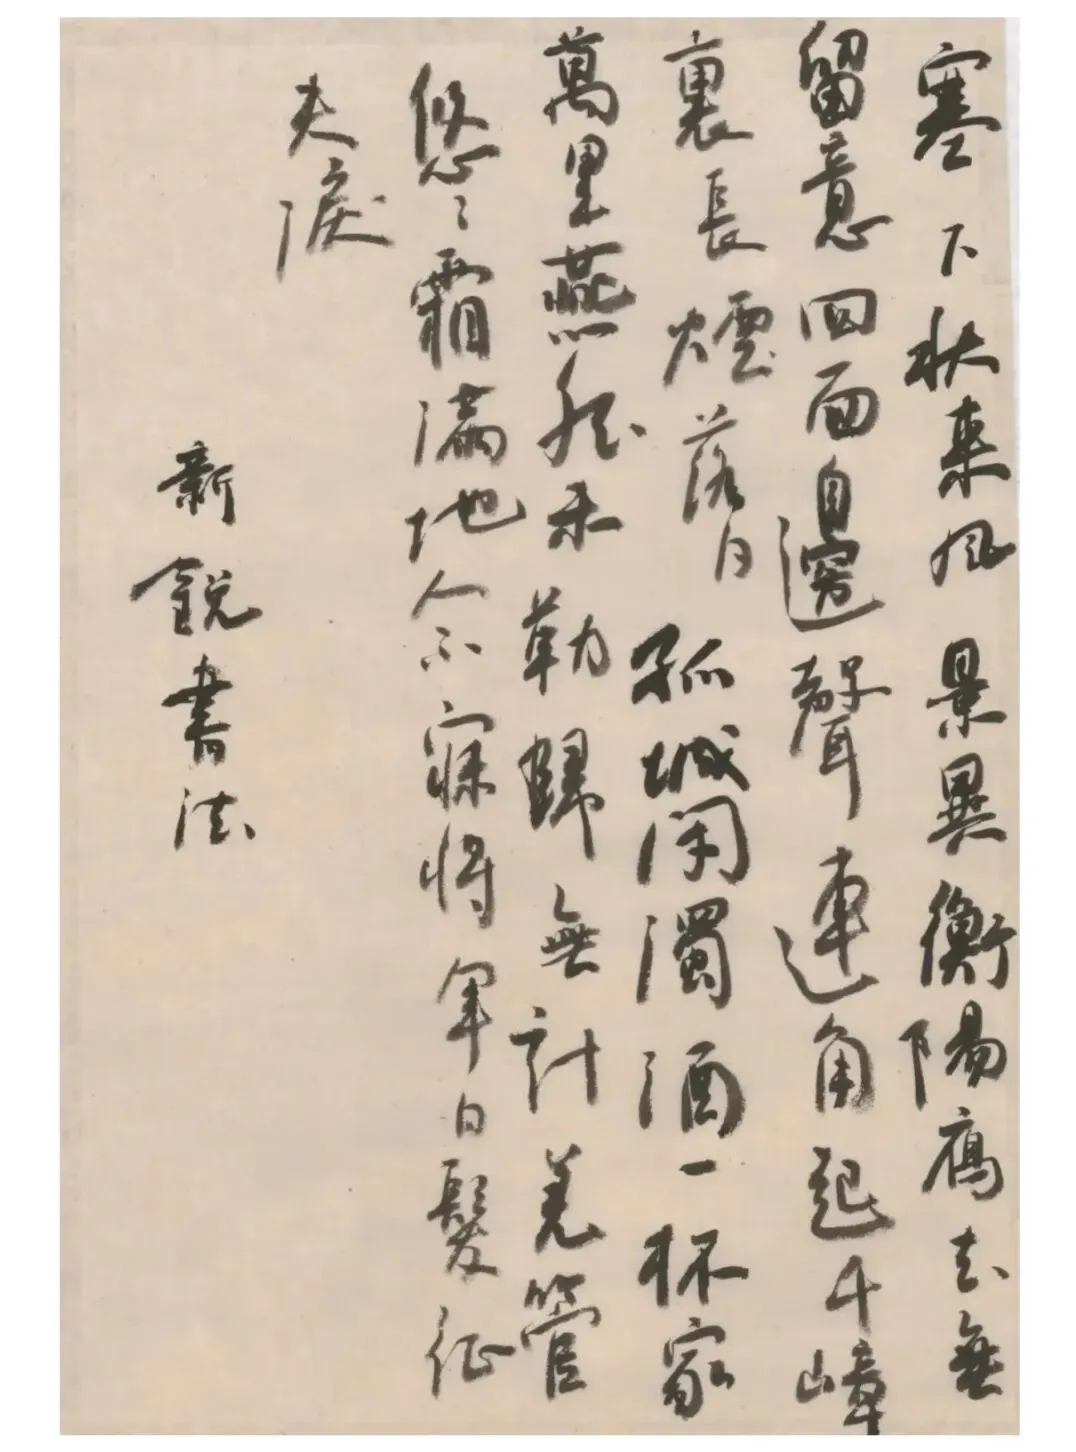 塞下秋来风景異衡陽雁去無
留意四面邊聲連角起千嶂
裏長煙落日孤城閉濁酒一杯家
萬里燕然未勒歸無計羌管
悠〻霜滿地人不寐將軍白髮征
夫淚
新銳書法